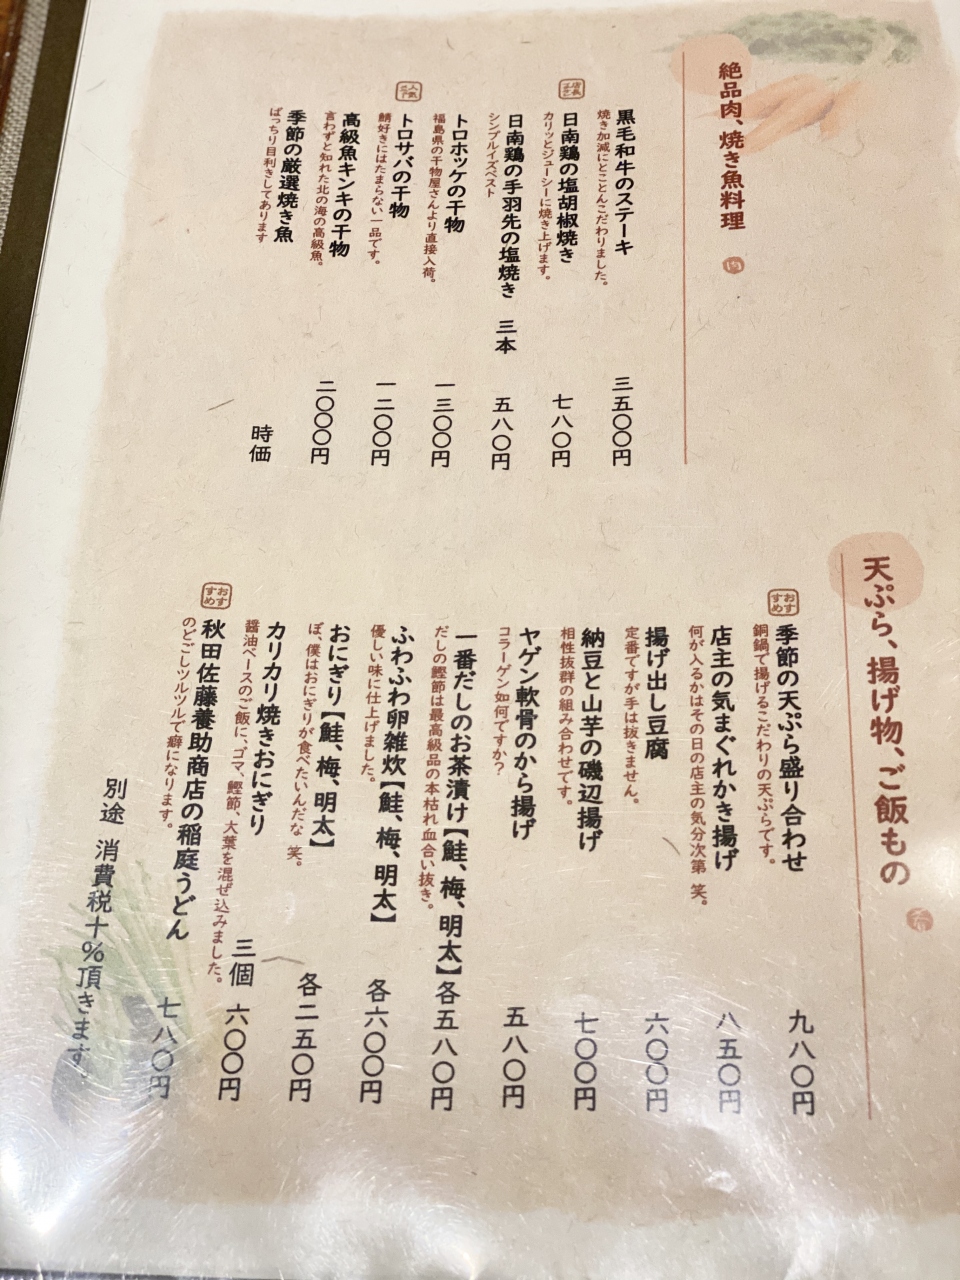 絶品肉、焼き魚料理
黒毛和牛のステーキ 三五〇〇円
焼き加減にとことんこだわりました。
店長
日南鶏の塩胡椒焼き 七八〇円
カリッとジューシーに焼き上げます。
日南鶏の手羽先の塩焼き 三本 五八〇円
シンプルイズベスト
トロホッケの干物 一三〇〇円
福島県の干物屋さんより直接入荷。
人気
トロサバの干物 一二〇〇円
鯖好きにはたまらない一品です。
高級魚キンキの干物 二〇〇〇円
言わずと知れた北の海の高級魚。
季節の厳選焼き魚 時価
ばっちり目利きしてあります
天ぷら、揚げ物、ご飯もの
おすすめ
季節の天ぷら盛り合わせ 九八〇円
銅鍋で揚げるこだわりの天ぷらです。
店主の気まぐれかき揚げ 八五〇円
何が入るかはその日の店主の気分次第 笑。
揚げ出し豆腐 六〇〇円
定番ですが手は抜きません。
納豆と山芋の磯辺揚げ 七〇〇円
相性抜群の組み合わせです。
ヤゲン軟骨のから揚げ 五八〇円
コラーゲン如何ですか？
一番だしのお茶漬け【鮭、梅、明太】各五八〇円
だしの鰹節は最高級品の本枯れ血合い抜き。
ふわふわ卵雑炊【鮭、梅、明太】 各六〇〇円
優しい味に仕上げました。
おにぎり【鮭、梅、明太】 各二五〇円
ぼ、僕はおにぎりが食べたいんだな 笑。
カリカリ焼きおにぎり 三個 六〇〇円
醤油ベースのご飯に、ゴマ、鰹節、大葉を混ぜ込みました。
おすすめ
秋田佐藤養助商店の稲庭うどん 七八〇円
のどごしツルツルで癖になります。
別途 消費税十％頂きます。